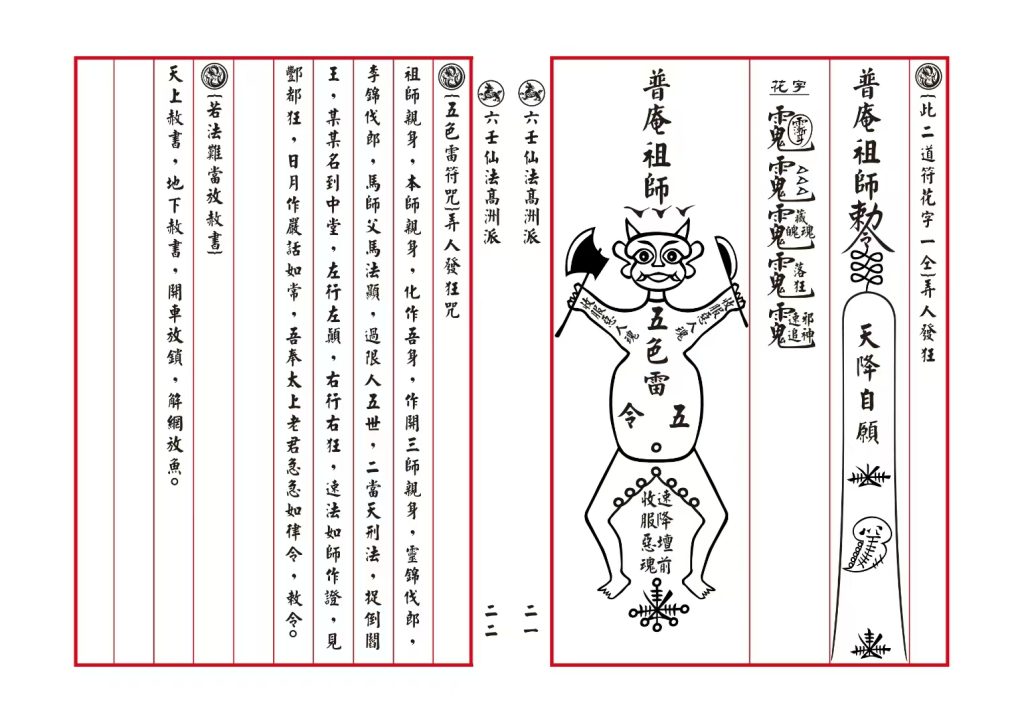 ﹝此二道符花字一仝﹞弄人發狂
普庵祖師勅令
天降自願
花字
藏魂魄
落狂
邪神速追
普庵祖師
收服惡人魂
收服惡人魂
五色雷
五
令
速降壇前
收服惡魂
六壬仙法高洲派
二一
六壬仙法高洲派
二二
﹝五色雷符咒﹞弄人發狂咒
祖師親身，本師親身，化作吾身，作開三師親身，靈錦伐郎，
李錦伐郎，馬師父馬法顯，過限人五世，二當天刑法，捉倒閻
王，某某名到中堂，左行左顛，右行右狂，速法如師作證，見
酆都狂，日月作嚴話如常，吾奉太上老君急急如律令，敕令。
﹝若法難當放赦書﹞
天上赦書，地下赦書，開車放鎖，解網放魚。